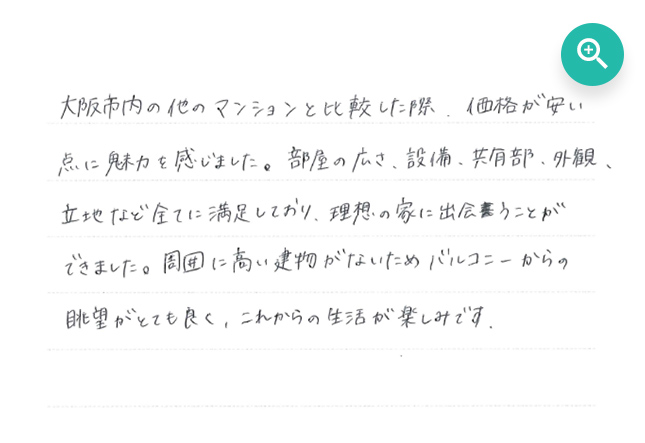 大阪市内の他のマンションと比較した際、価格が安い
点に魅力を感じました。部屋の広さ、設備、共有部、外観、
立地など全てに満足しており、理想の家に出会うことが
できました。周囲に高い建物がないためバルコニーからの
眺望がとても良く、これからの生活が楽しみです。